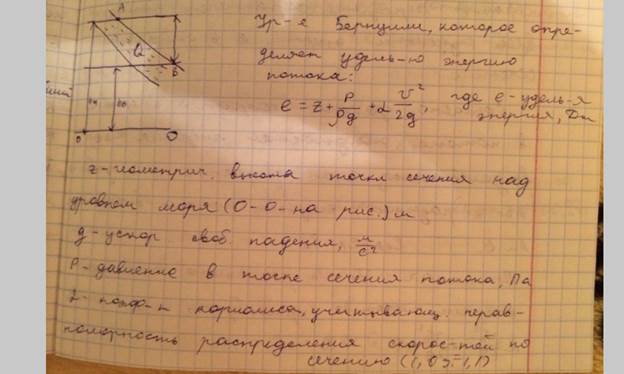 A
Q
B
O
O
Ур-е Бернулли, которое опре-
деляет удель-ю энергию
потока:
e = z + P/ρg + α v²/2g, где e - удель-я
энергия, Дж
z - геометрич. высота точки сечения над
уровнем моря (О-О- на рис.) м
g - ускор своб. падения, м/с²
P - давление в точке сечения потока, Па
α - коэф-т кориолиса, учитывающ. нерав-
номерность распределения скорос-тей по
сечению (1,05÷1,1)